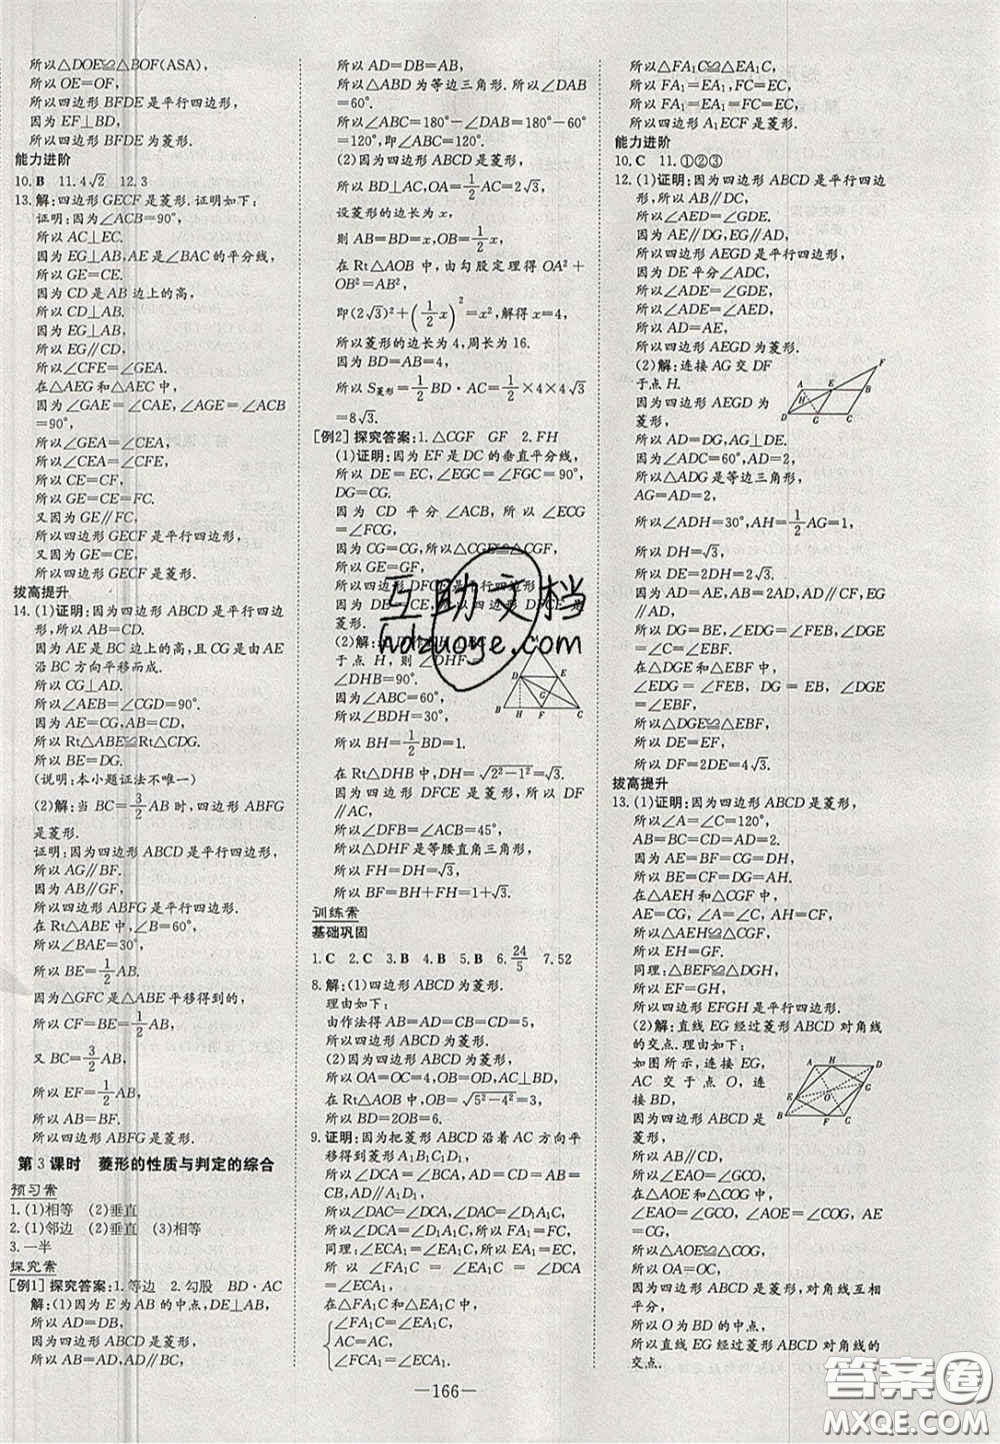 所以△DOE≌△BOF(ASA),
所以 OE=OF,
所以四边形 BFDE 是平行四边形,
因为 EF⊥BD,
所以四边形 BFDE 为菱形.
能力进阶
10.B 11.4√2 12.3
13.解:四边形 GECF 是菱形.证明如下:
证明:因为∠ACB=90°,
所以 AC⊥EC.
因为 EG⊥AB,AE是∠BAC的平分线,
所以 GE=CE.
因为 CD 是 AB 边上的高,
所以 CD⊥AB.
因为 EG⊥AB,
所以 EG∥CD,
所以∠CFE=∠GEA.
在△AEG 和△AEC 中,
∠GAE=∠CAE,∠AGE=∠ACB
=90°,
所以∠GEA=∠CEA,
所以∠CEA=∠CFE,
所以 CE=CF,
所以 GE=CE=FC.
又因为 GE∥FC,
所以四边形 GECF 是平行四边形,
又因为 GE=CE,
所以四边形 GECF 是菱形.
拔高提升
14.(1)证明:因为四边形 ABCD 是平行四边
形,所以 AB=CD.
因为 AE 是 BC 边上的高,且CG是由AE
沿 BC 方向平移而成.
所以 CG⊥AD.
所以∠AEB=∠CGD=90°.
因为 AE=CG,AB=CD,
所以 Rt△ABE≌Rt△CDG.
所以 BE=DG.
(说明:本小题证法不唯一)
(2)解:当 BC=3/2AB 时,四边形 ABFG
是菱形.
证明:因为四边形 ABCD 是平行四边形,
所以 AG∥BF.
因为 AB∥GF,
所以四边形 ABFG 是平行四边形.
在 Rt△ABE 中,∠B=60°,
所以∠BAE=30°,
所以 BE=1/2AB.
因为△GFC 是△ABE 平移得到的,
所以 CF=BE=1/2AB,
又 BC=3/2AB,
所以 EF=1/2AB.
所以 AB=BF.
所以四边形 ABFG 是菱形.
第 3 课时 菱形的性质与判定的综合
预习案
1.(1)相等 (2)垂直
2.(1)邻边 (2)垂直 (3)相等
3.一半
探究案
[例1] 探究答案:1.等边 2.勾股 BD·AC
解:(1)因为 E为AB的中点,DE⊥AB,
所以 AD=DB,
因为四边形 ABCD 是菱形,
所以 AB=AD,
所以 AD=DB=AB,
所以△ABD 为等边三角形.所以∠DAB
=60°.
所以∠ABC=180°-∠DAB=180°-60°
=120°,即∠ABC=120°.
(2)因为四边形 ABCD 是菱形,
所以 BD⊥AC,OA=1/2AC=2√3,
设菱形的边长为 x,
则 AB=BD=x,OB=1/2x,
在 Rt△AOB 中,由勾股定理得 OA²+
OB²=AB²,
即(2√3)²+(1/2x)²=x²,解得x=4,
所以菱形的边长为4,周长为 16.
因为 BD=AB=4,
所以 S菱形=1/2BD·AC=1/2×4×4√3
=8√3.
[例2] 探究答案:1.△CGF GF 2.FH
(1)证明:因为 EF 是 DC 的垂直平分线,
所以 DE=EC,∠EGC=∠FGC=90°,
DG=CG.
因为 CD 平分∠ACB,所以∠ECG
=∠FCG,
因为 CG=CG,所以△CGE≌△CGF,
所以 GE=GF,
所以四边形 DFCE 是平行四边形,
因为 DE=CE,所以四边形 DFCE 是菱
形.
于点 H,则∠DHF=
∠DHB=90°.
因为∠ABC=60°,
所以∠BDH=30°,
所以 BH=1/2BD=1.
在 Rt△DHB 中,DH=√(2²-1²)=√3.
因为四边形 DFCE 是菱形,所以 DF
∥AC,
所以∠DFB=∠ACB=45°,
所以△DHF 是等腰直角三角形,
所以 FH=DH=√3,
所以 BF=BH+FH=1+√3.
训练案
基础巩固
1.C 2.C 3.B 4.B 5.B 6.24/5 7.52
8.解:(1)四边形 ABCD 为菱形.
理由如下:
由作法得 AB=AD=CB=CD=5,
所以四边形 ABCD 为菱形.
(2)因为四边形 ABCD 为菱形,
所以 OA=OC=4,OB=OD,AC⊥BD,
在 Rt△AOB 中,OB=√(5²-4²)=3,
所以 BD=2OB=6.
9.证明:因为把菱形 ABCD 沿着 AC 方向平
移得到菱形 A₁B₁C₁D₁,
所以 A₁D₁=AD=CD=C₁D₁=AB=
CB,AD∥A₁D₁,
所以∠DAC=∠DCA=∠D₁A₁C₁,
所以∠DCA=∠D₁A₁C,所以FA₁=FC,
同理:∠ECA₁=∠EA₁C,EC=EA₁,
所以∠FA₁C=∠EA₁C=∠DCA=
∠ECA₁,
在△FA₁C和△EA₁C 中,
∠FA₁C=∠EA₁C,
AC=AC,
∠FCA₁=∠ECA₁,
所以△FA₁C≌△EA₁C,
所以 FA₁=EA₁,FC=EC,
所以 FA₁=EA₁=FC=EC,
所以四边形 A₁ECF 是菱形.
能力进阶
10.C 11.①②③
12.(1)证明:因为四边形 ABCD 是平行四边形,
所以 AB∥DC,
所以∠AED=∠GDE.
因为 AE∥DG,EG∥AD,
所以四边形 AEGD 是平行四边形.
因为 DE 平分∠ADC,
所以∠ADE=∠GDE,
所以∠ADE=∠AED,
所以 AD=AE,
所以四边形 AEGD 为菱形.
(2)解:连接 AG 交 DF
于点 H.
因为四边形 AEGD 为
菱形,
所以 AD=DG,AG⊥DE.
因为∠ADC=60°,AD=2,
所以△ADG 是等边三角形,
AG=AD=2,
所以∠ADH=30°,AH=1/2AG=1,
所以 DH=√3,
所以 DE=2DH=2√3.
因为 AD=AE,AB=2AD,AD∥BF,
所以 DG=BE,∠EDG=∠FEB,∠DGE
=∠C=∠EBF,
在△DGE 和△EBF 中,
∠EDG=∠FEB,DG=BE,∠DGE
=∠EBF,
所以△DGE≌△EBF,
所以 DE=EF,
所以 DF=2DE=4√3.
拔高提升
13.(1)证明:因为四边形 ABCD 是菱形,
所以∠A=∠C=120°,
AB=BC=CD=AD.
因为 AE=BF=CG=DH,
所以 BE=CF=DG=AH.
在△AEH 和△CGF 中,
AE=CG,∠A=∠C,AH=CF,
所以△AEH≌△CGF,
所以 EH=GF.
同理:△BEF≌△DGH,
所以 EF=GH,
所以四边形 EFGH 是平行四边形.
(2)解:直线 EG 经过菱形 ABCD 对角线
的交点.理由如下:
如图所示,连接 EG,
AC 交于点 O,连
接BD,
因为四边形 ABCD 是
菱形,
所以 AB∥CD,
所以∠EAO=∠GCO.
在△AOE 和△COG 中,
∠EAO=∠GCO,∠AOE=∠COG,
AE=CG,
所以△AOE≌△COG,
所以 AO=CO.
因为在菱形 ABCD 中,对角线互相
平分,
所以 O 为 BD 的中点,
所以直线 EG 经过菱形 ABCD 对角线的
交点.
—166—
互助文档
hdzuoye.com
答案圈
MXQE.COM